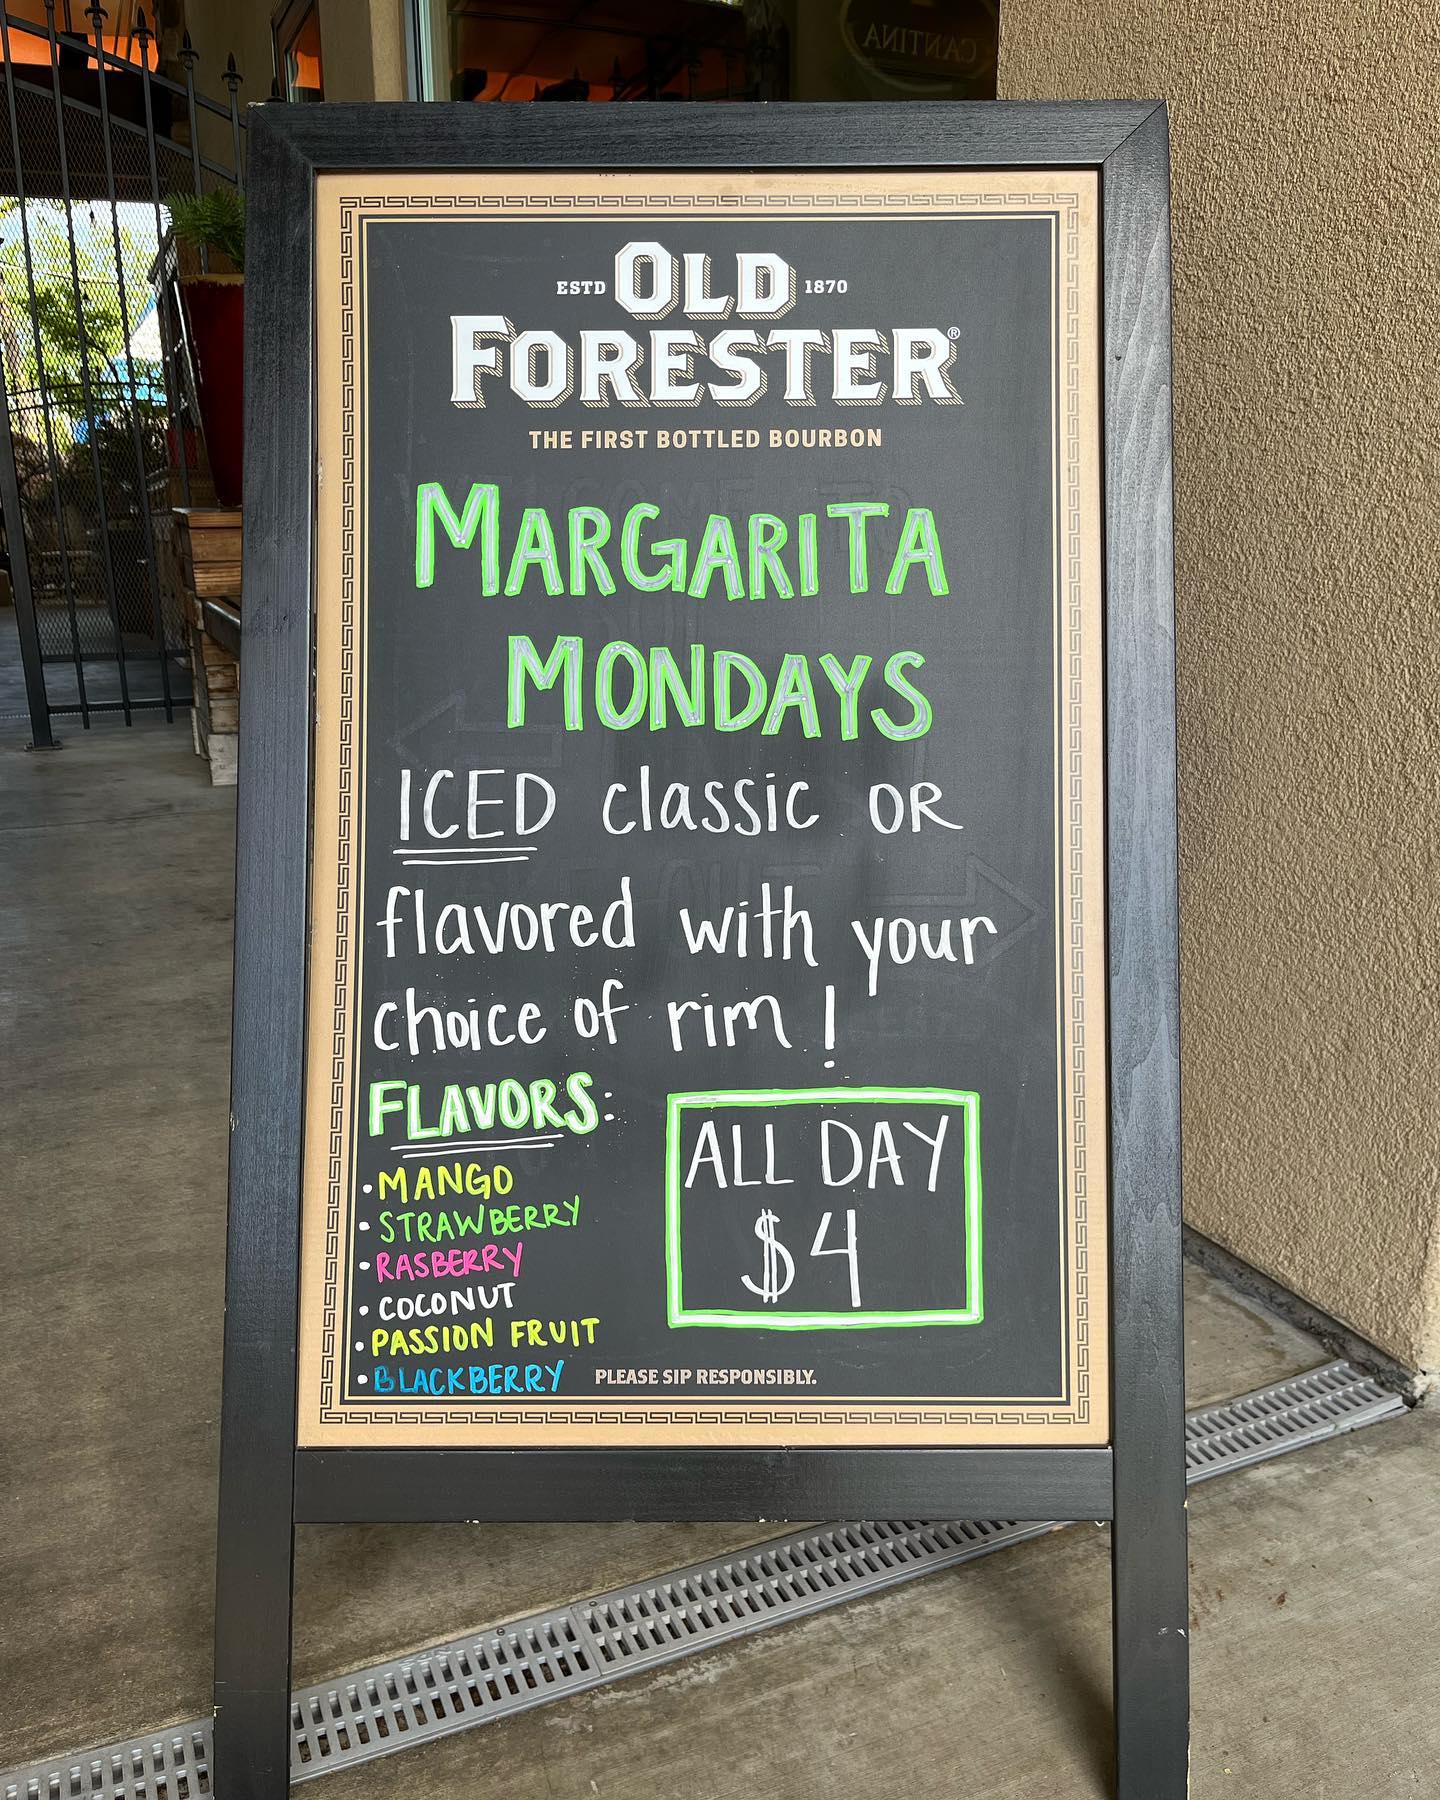 CANTINA
ESTD OLD 1870
FORESTER®
THE FIRST BOTTLED BOURBON
MARGARITA
MONDAYS
ICED classic OR
flavored with your
choice of rim!
FLAVORS:
• MANGO
• STRAWBERRY
• RASBERRY
• COCONUT
• PASSION FRUIT
• BLACKBERRY
ALL DAY
$4
PLEASE SIP RESPONSIBLY.